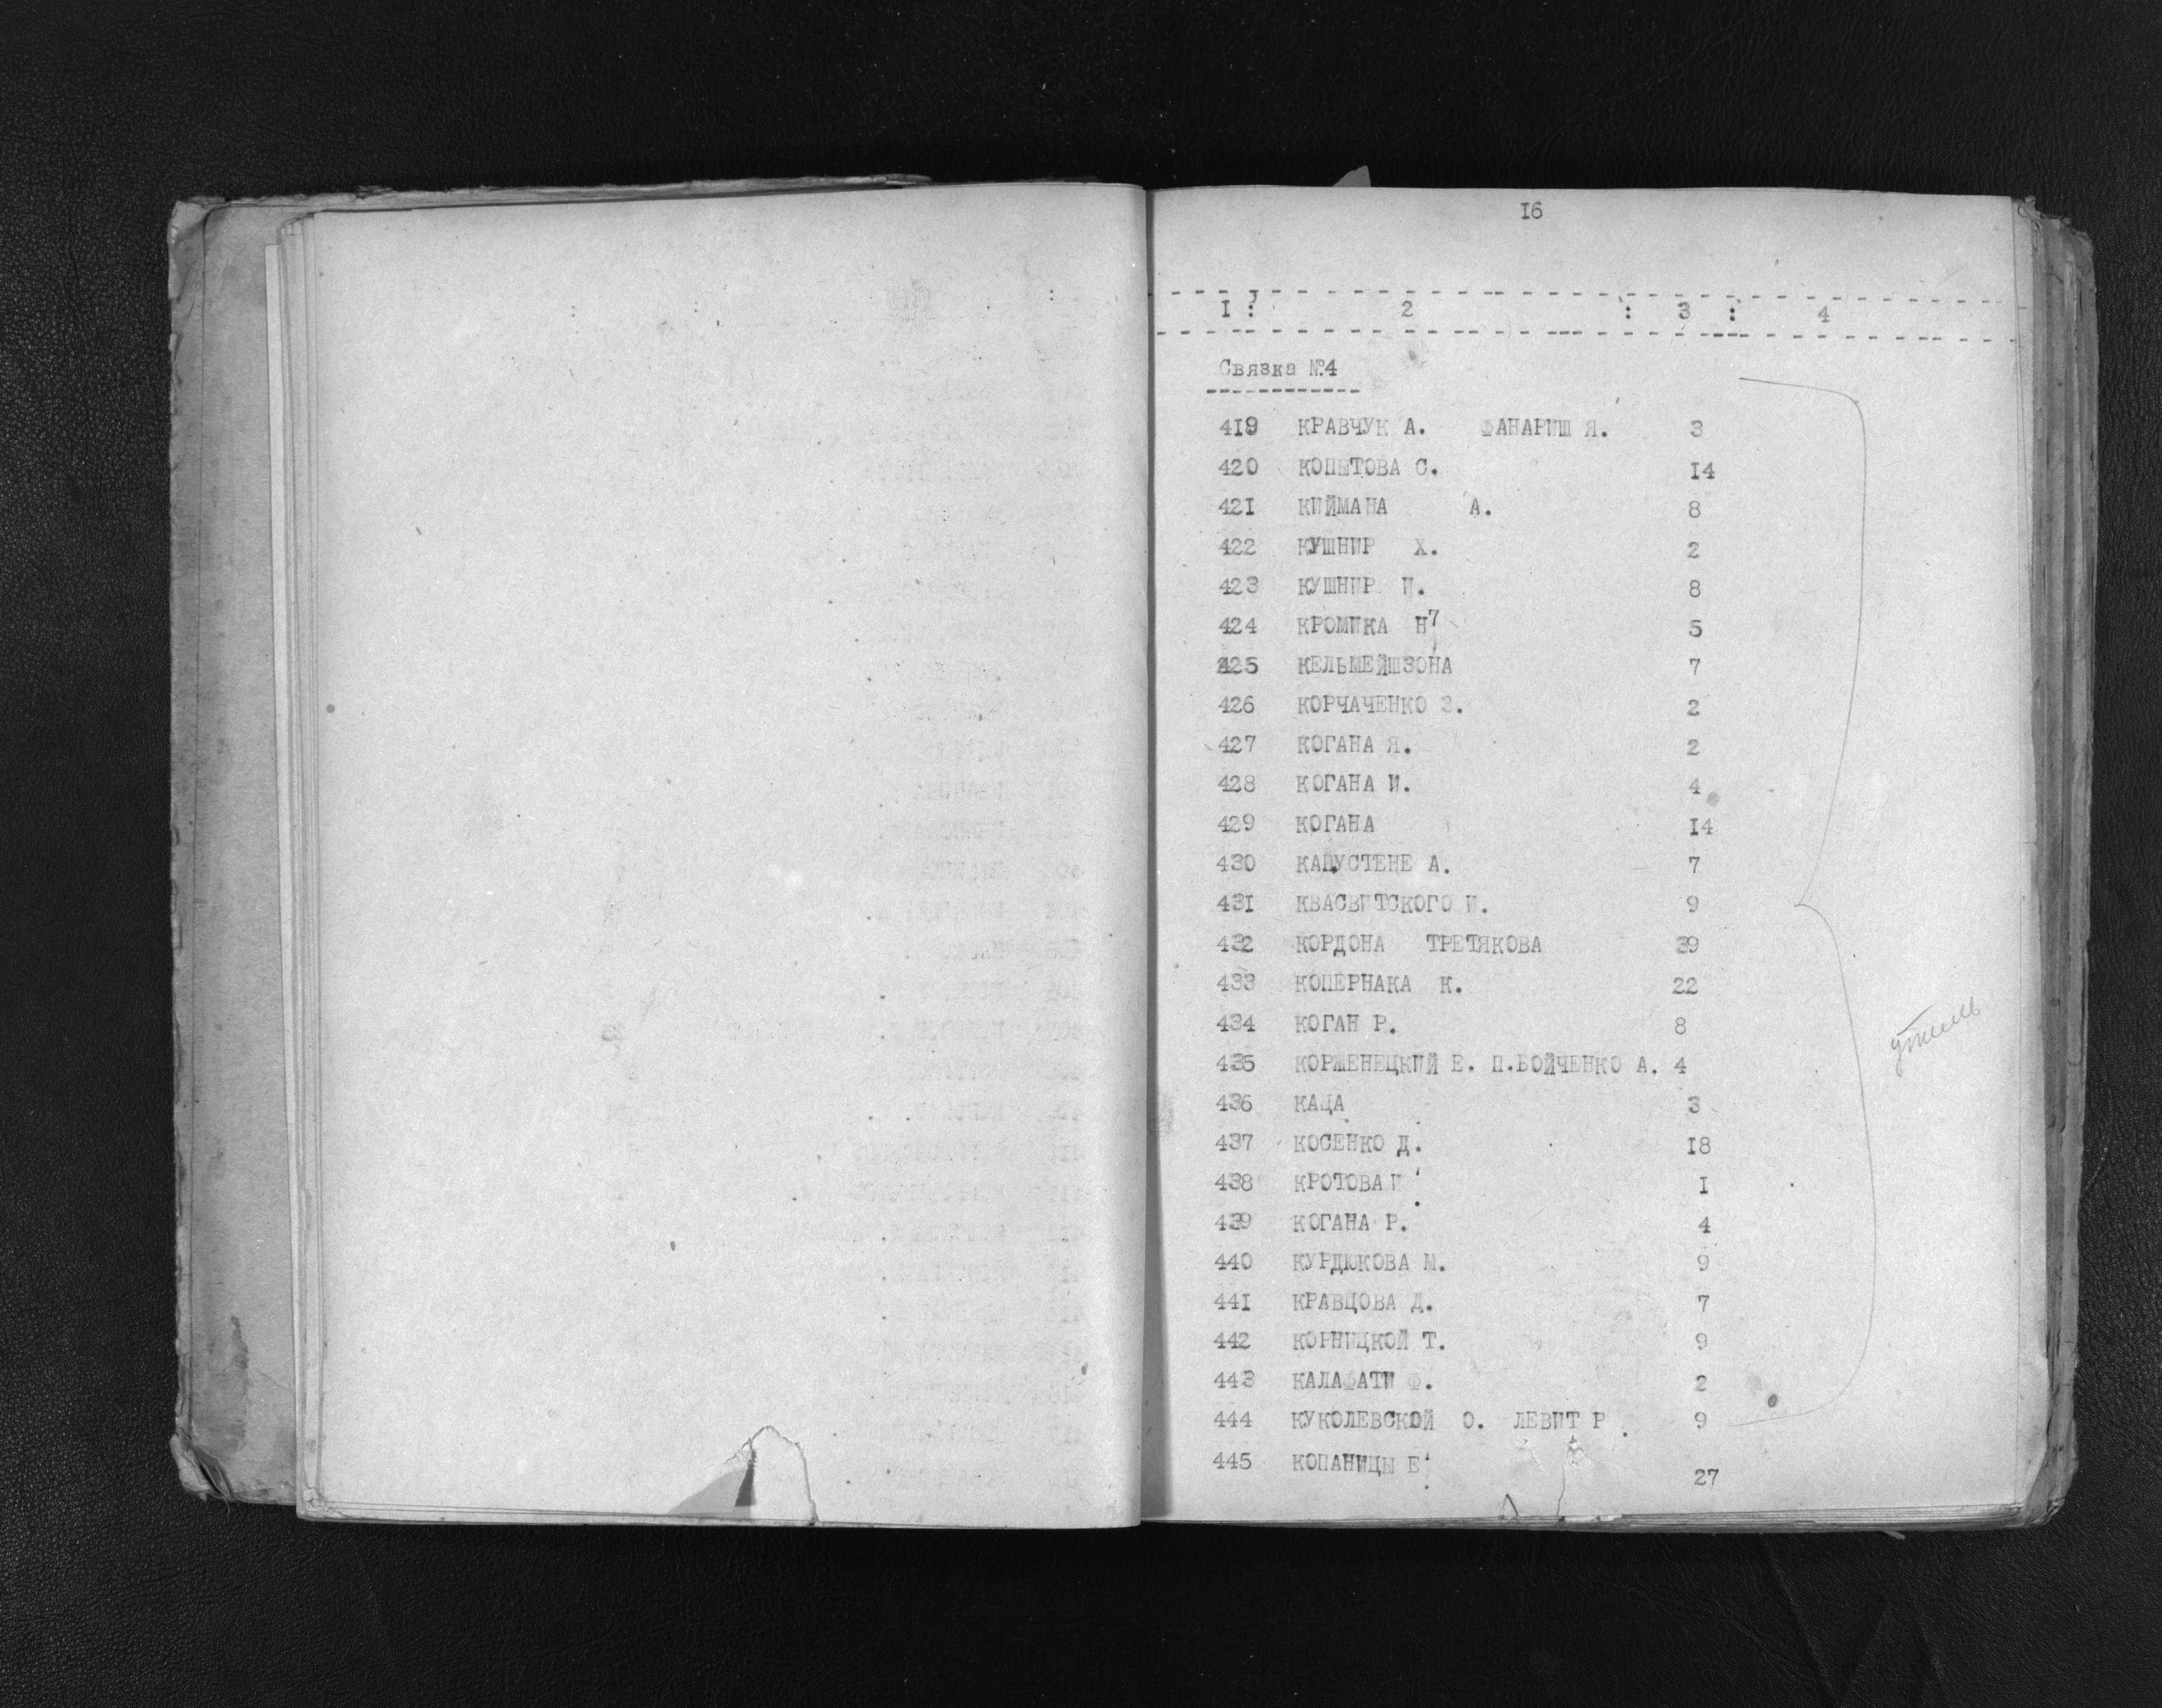 16
1 : 2 : 3 : 4
Связка №4
419 КРАВЧУК А. ФАНАРИШ Я. 3
420 КОПЫТОВА С. 14
421 КИЙМАНА А. 8
422 КУШНИР Х. 2
423 КУШНИР И. 8
424 КРОМИКА Н7 5
425 КЕЛЬМЕЙШЗОНА 7
426 КОРЧАЧЕНКО З. 2
427 КОГАНА Я. 2
428 КОГАНА И. 4
429 КОГАНА 14
430 КАПУСТЕНЕ А. 7
431 КВАСВИТСКОГО И. 9
432 КОРДОНА ТРЕТЯКОВА 39
433 КОПЕРНАКА К. 22
434 КОГАН Р. 8
435 КОРЖЕНЕЦКИЙ Е. П.БОЙЧЕНКО А. 4
436 КАЦА 3
437 КОСЕНКО Д. 18
438 КРОТОВА И. 1
439 КОГАНА Р. 4
440 КУРДЮКОВА М. 9
441 КРАВЦОВА Д. 7
442 КОРНИЦКОЙ Т. 9
443 КАЛАФАТИ Ф. 2
444 КУКОЛЕВСКОЙ О. ЛЕВИТ Р. 9
445 КОПАНИЦЫ Е. 27